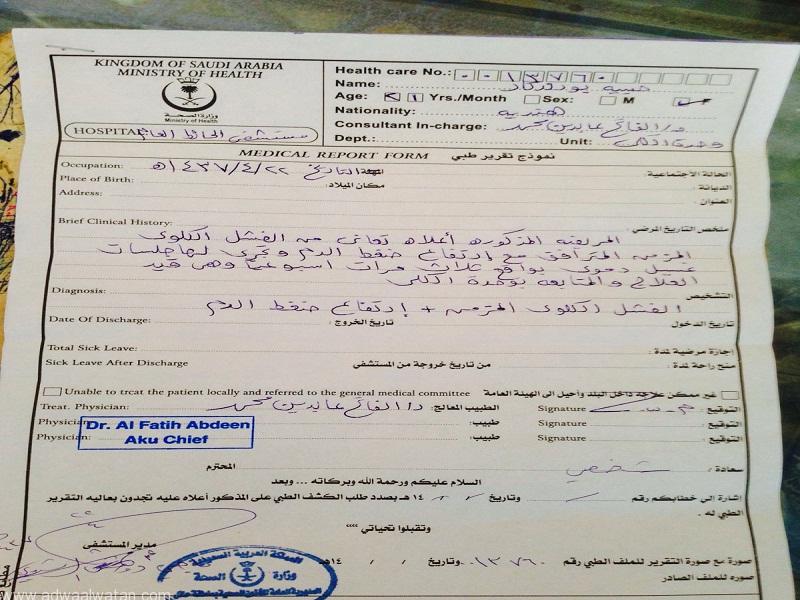 KINGDOM OF SAUDI ARABIA
MINISTRY OF HEALTH
وزارة الصحة
Ministry of Health
HOSPITAL
مستشفى
Health care No.: 0013760
Name:
Age: 21 Yrs./Month Sex: M
Nationality: هندية
Consultant In-charge: د/ الفاتح عابدين محمد
Dept.: Unit: وحدة الكلى
MEDICAL REPORT FORM نموذج تقرير طبي
Occupation: التاريخ ١٤٣٧/٤/٢٢هـ الحالة الاجتماعية:
Place of Birth: مكان الميلاد: الديانة:
Address: العنوان:
Brief Clinical History: ملخص التاريخ المرضي:
المريضه المذكوره أعلاه تعانى من الفشل الكلوى
المزمن المترافق مع إرتفاع ضغط الدم وتجرى لها جلسات
غسيل دموى بواقع ثلاث مرات اسبوعياً وهى قيد
العلاج والمتابعه بوحدة الكلى
Diagnosis: التشخيص
الفشل الكلوى المزمن + إرتفاع ضغط الدم
Date Of Discharge: تاريخ الخروج: تاريخ الدخول
Total Sick Leave: إجازة مرضية لمدة:
Sick Leave After Discharge من تاريخ خروجة من المستشفى منح راحة لمدة:
Unable to treat the patient locally and referred to the general medical committee غير ممكن علاجه داخل البلد وأحيل إلى الهيئة العامة
Treat. Physician: د/ الفاتح عابدين محمد الطبيب المعالج: Signature التوقيع:
Physician: طبيب: Signature التوقيع:
Physician: طبيب: Signature التوقيع:
Dr. Al Fatih Abdeen
Aku Chief
سعادة / شخصي المحترم
السلام عليكم ورحمة الله وبركاته ... وبعد
إشارة إلى خطابكم رقم وتاريخ / / ١٤هـ بصدد طلب الكشف الطبي على المذكور أعلاه عليه تجدون بعاليه التقرير
الطبي له .
وتقبلوا تحياتي
مدير المستشفى
صورة مع صورة التقرير للملف الطبي رقم ٠٠١٣٧٦٠ وتاريخ / / ١٤هـ
صوره للملف الصادر
المملكة العربية السعودية
وزارة الصحة
www.adwaalwatan.com